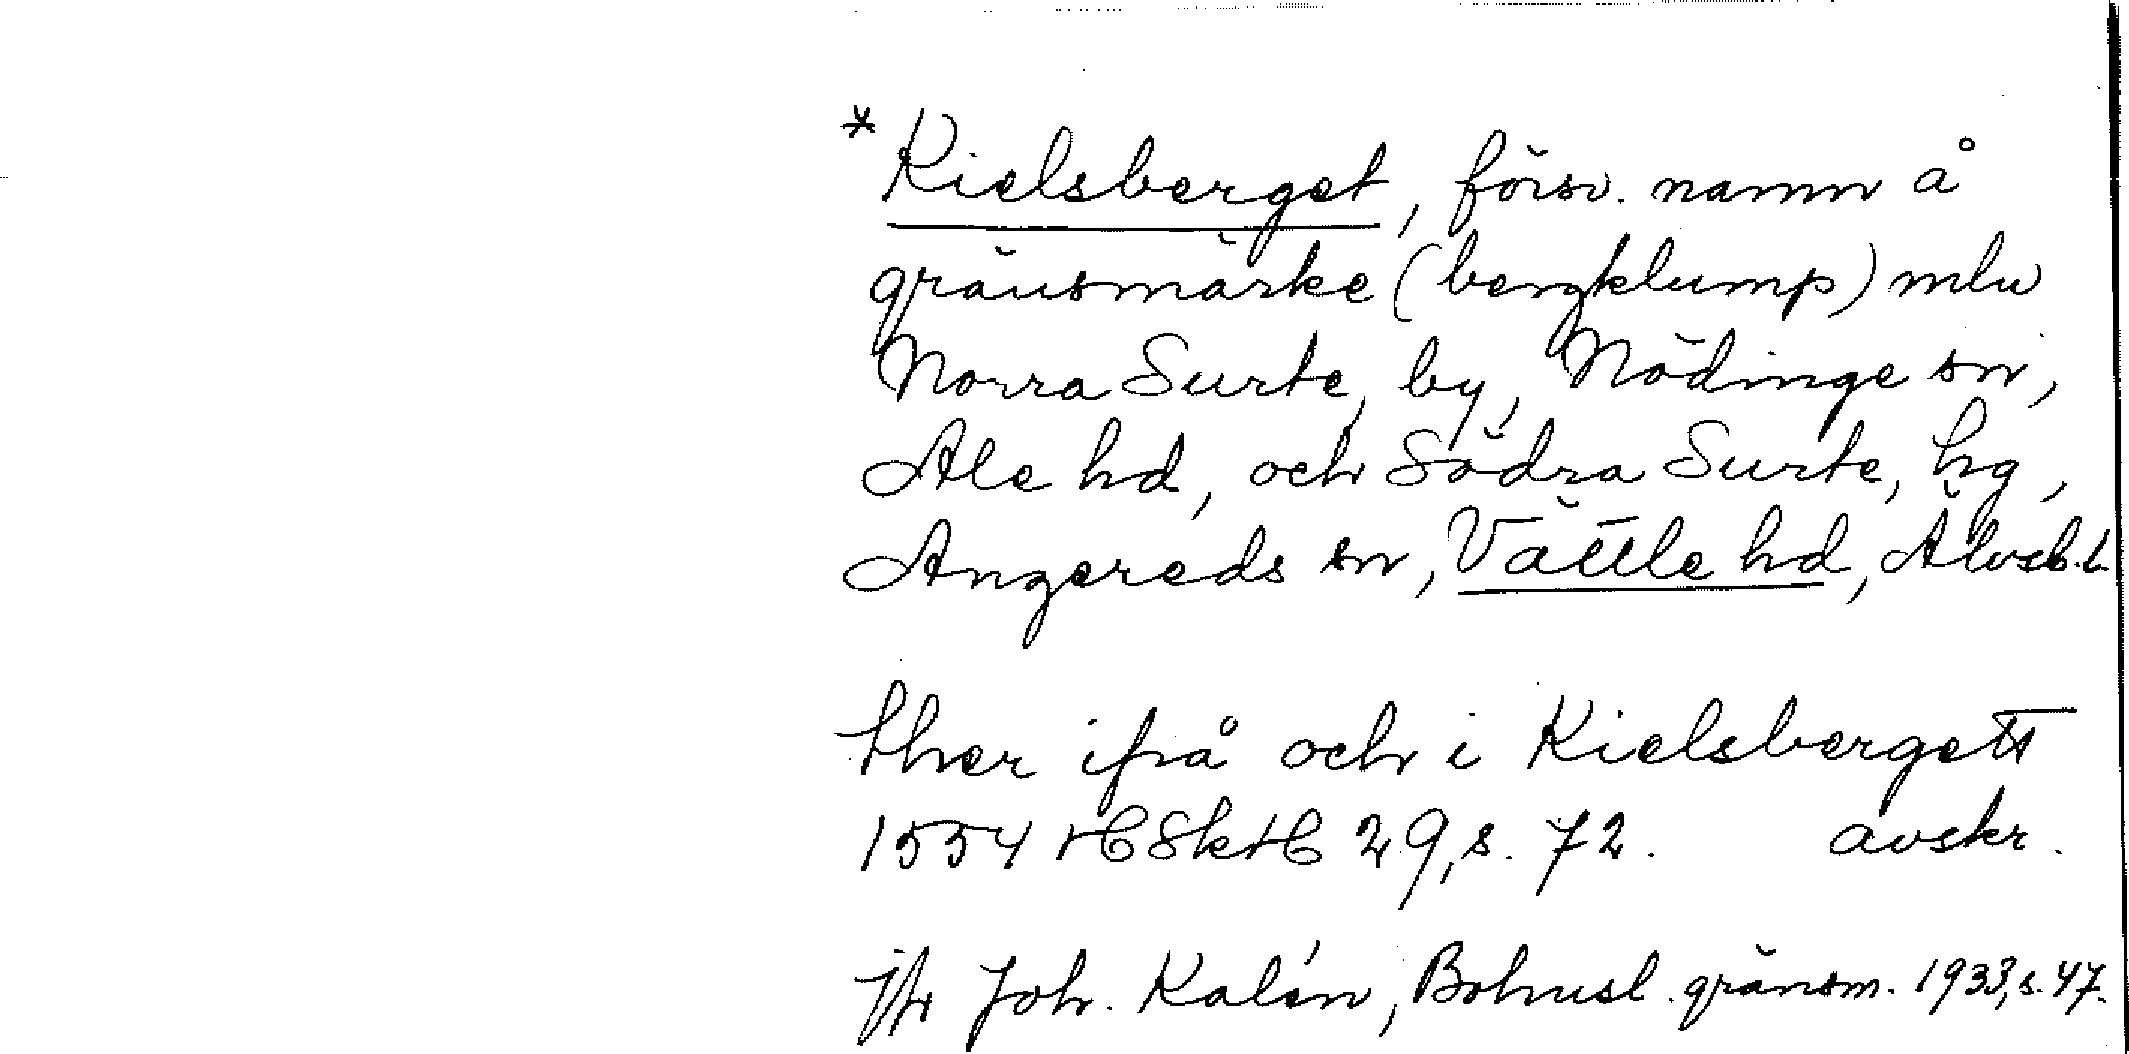 * Kielsberget, försv. namn å
gränsmärke (bergklump) mln
Norra Surte, by, Nödinge sn,
Ale hd, och Södra Surte, hg,
Angereds sn, Vättle hd, Älvsb. l.
ther ifrå och i Kielsbergett
1554 HSkH 29, s. 72. avskr.
jfr Joh. Kalén, Bohusl. gränsm. 1933, s. 47.